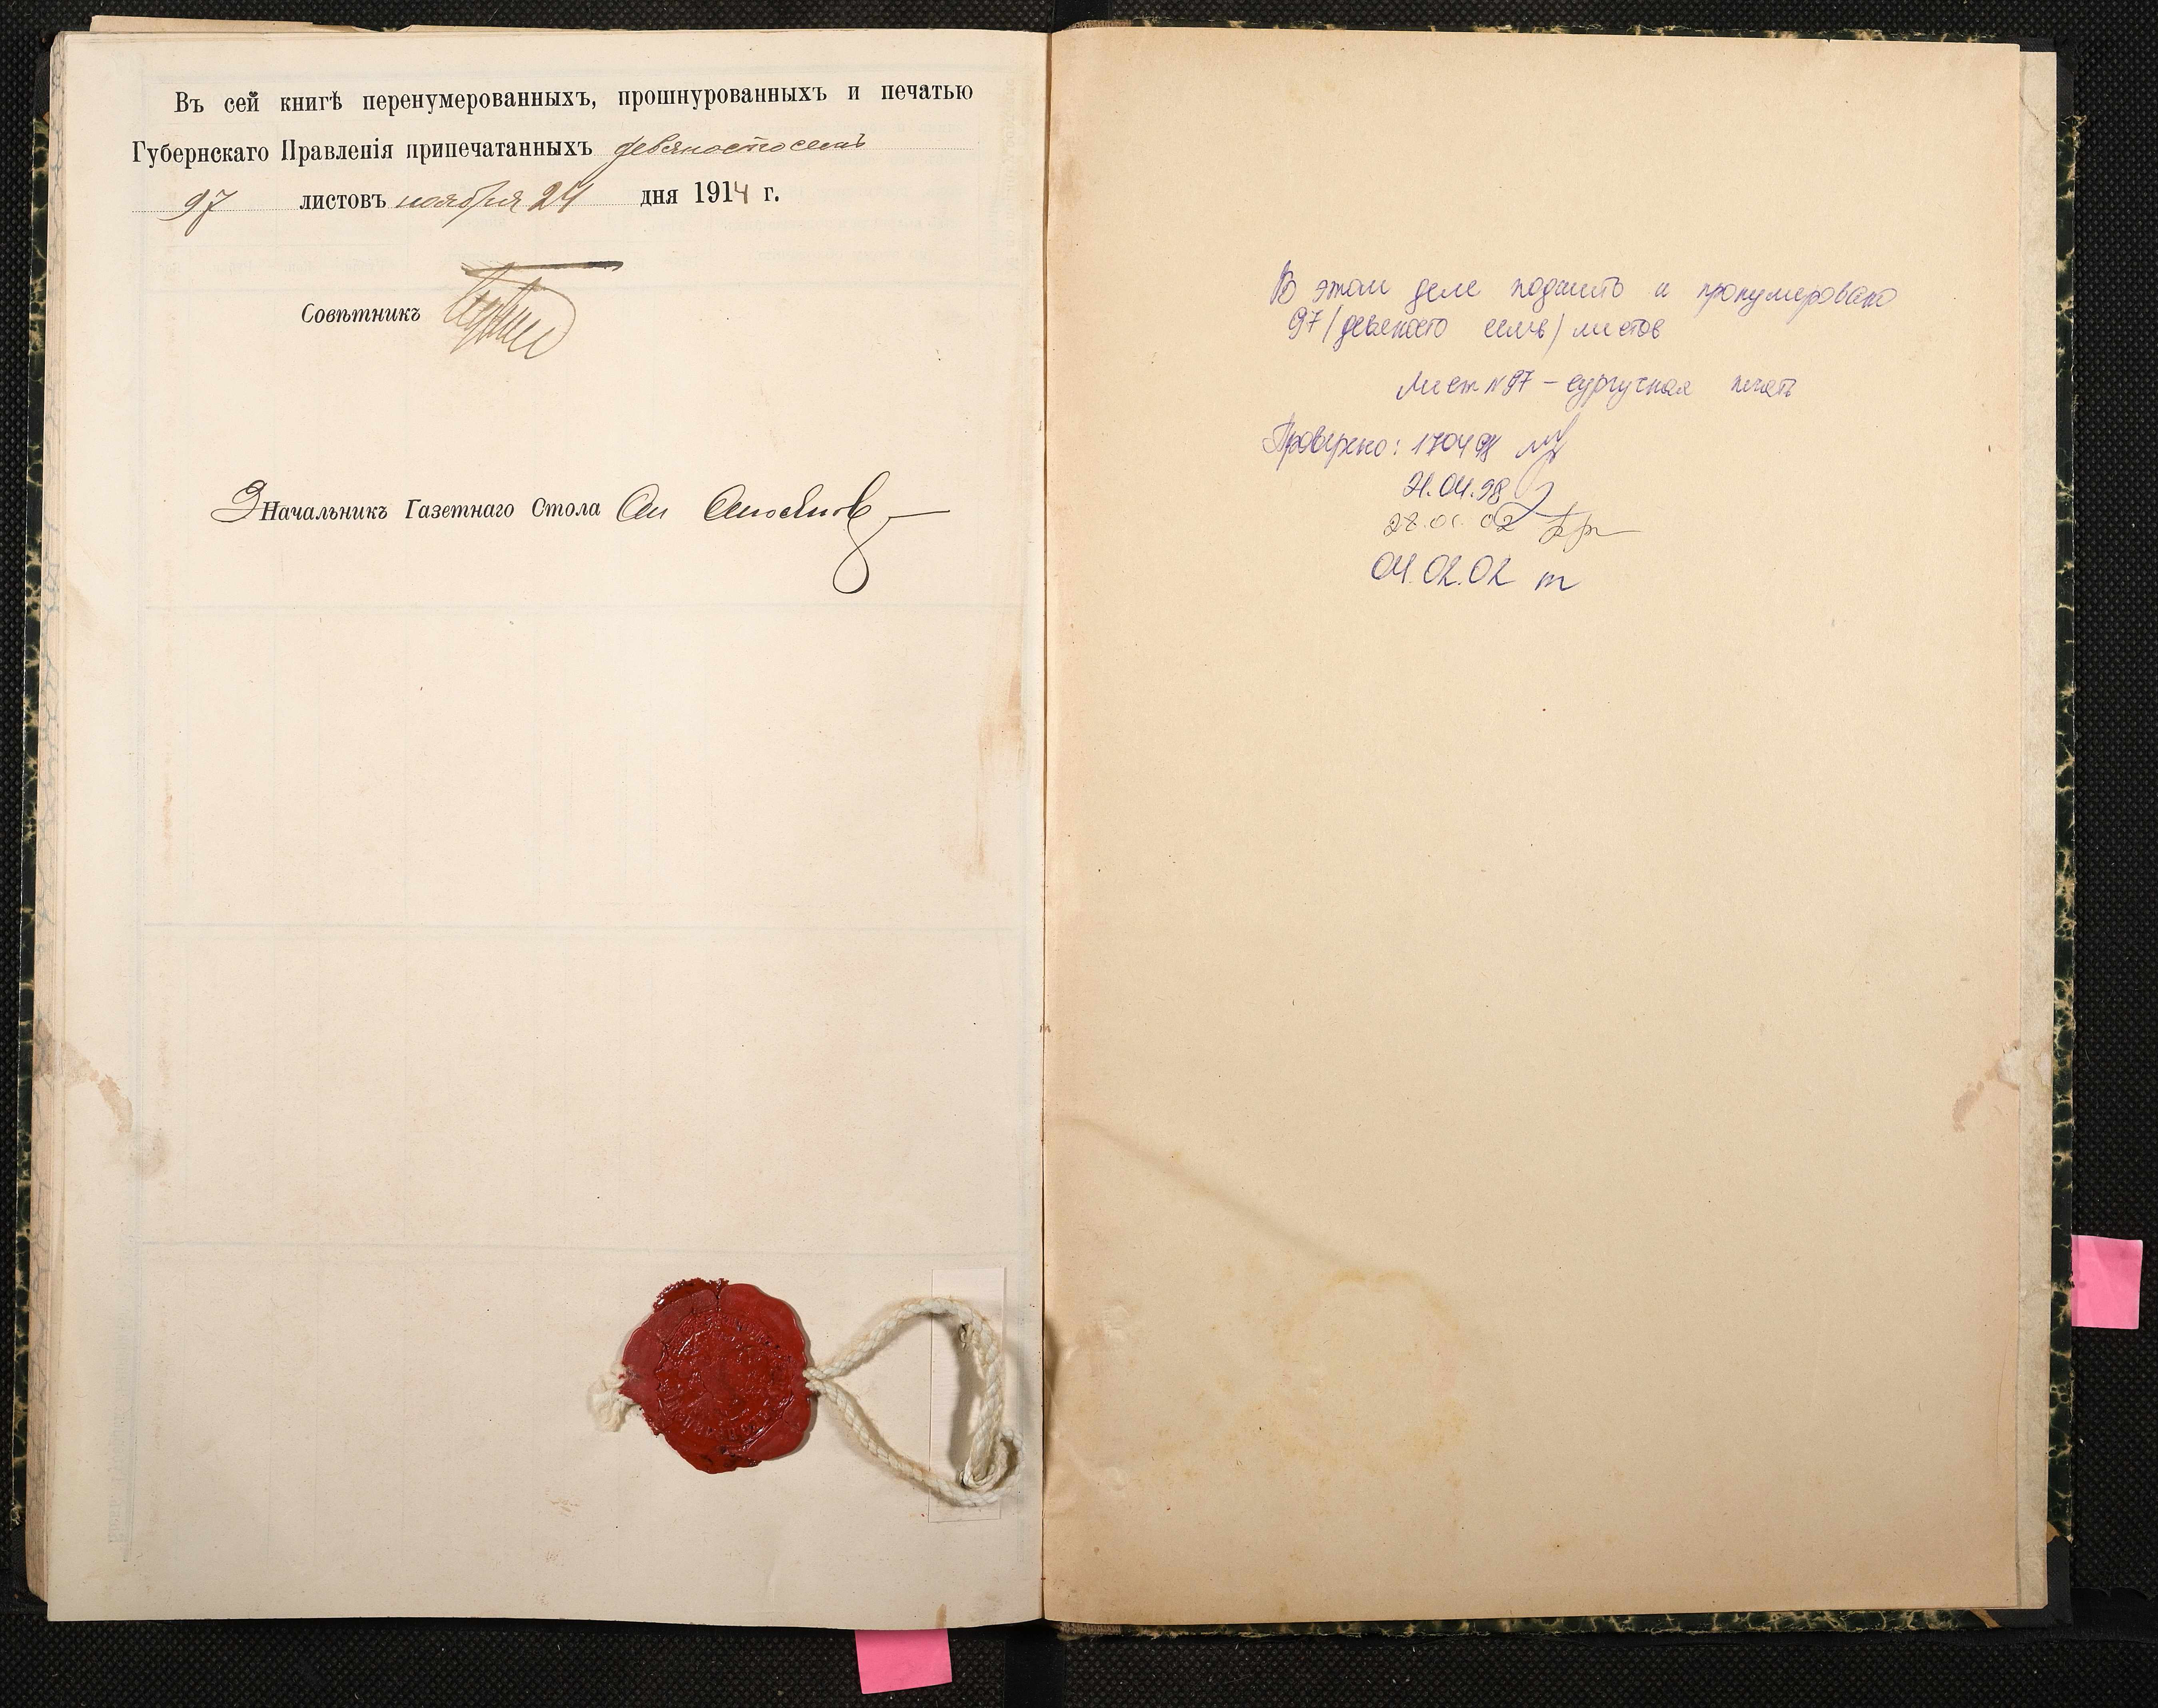 Въ сей книгѣ перенумерованныхъ, прошнурованныхъ и печатью
Губернскаго Правленія припечатанныхъ девяносто семь
97 листовъ ноября 24 дня 1914 г.
Совѣтникъ
Начальникъ Газетнаго Стола
В этом деле подшито и пронумеровано
97 /девяносто семь/ листов
Лист №97 – сургучная печать
Проверено: 170498
21.04.98
28.01.02
04.02.02